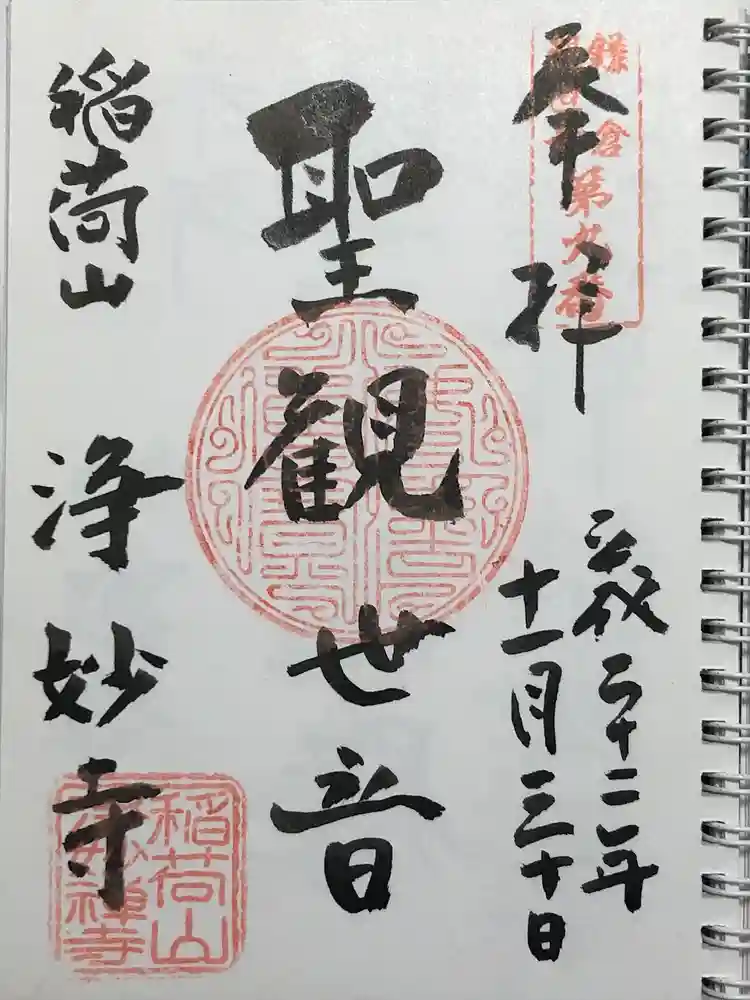 奉拝
鎌倉
第九番
平成二十二年
十一月三十日
聖観世音
稲荷山
浄妙寺
稲荷山
浄妙禅寺